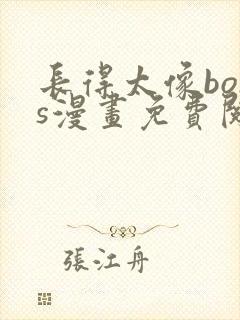 長得太像bos
s漫畫免費閱
張江舟